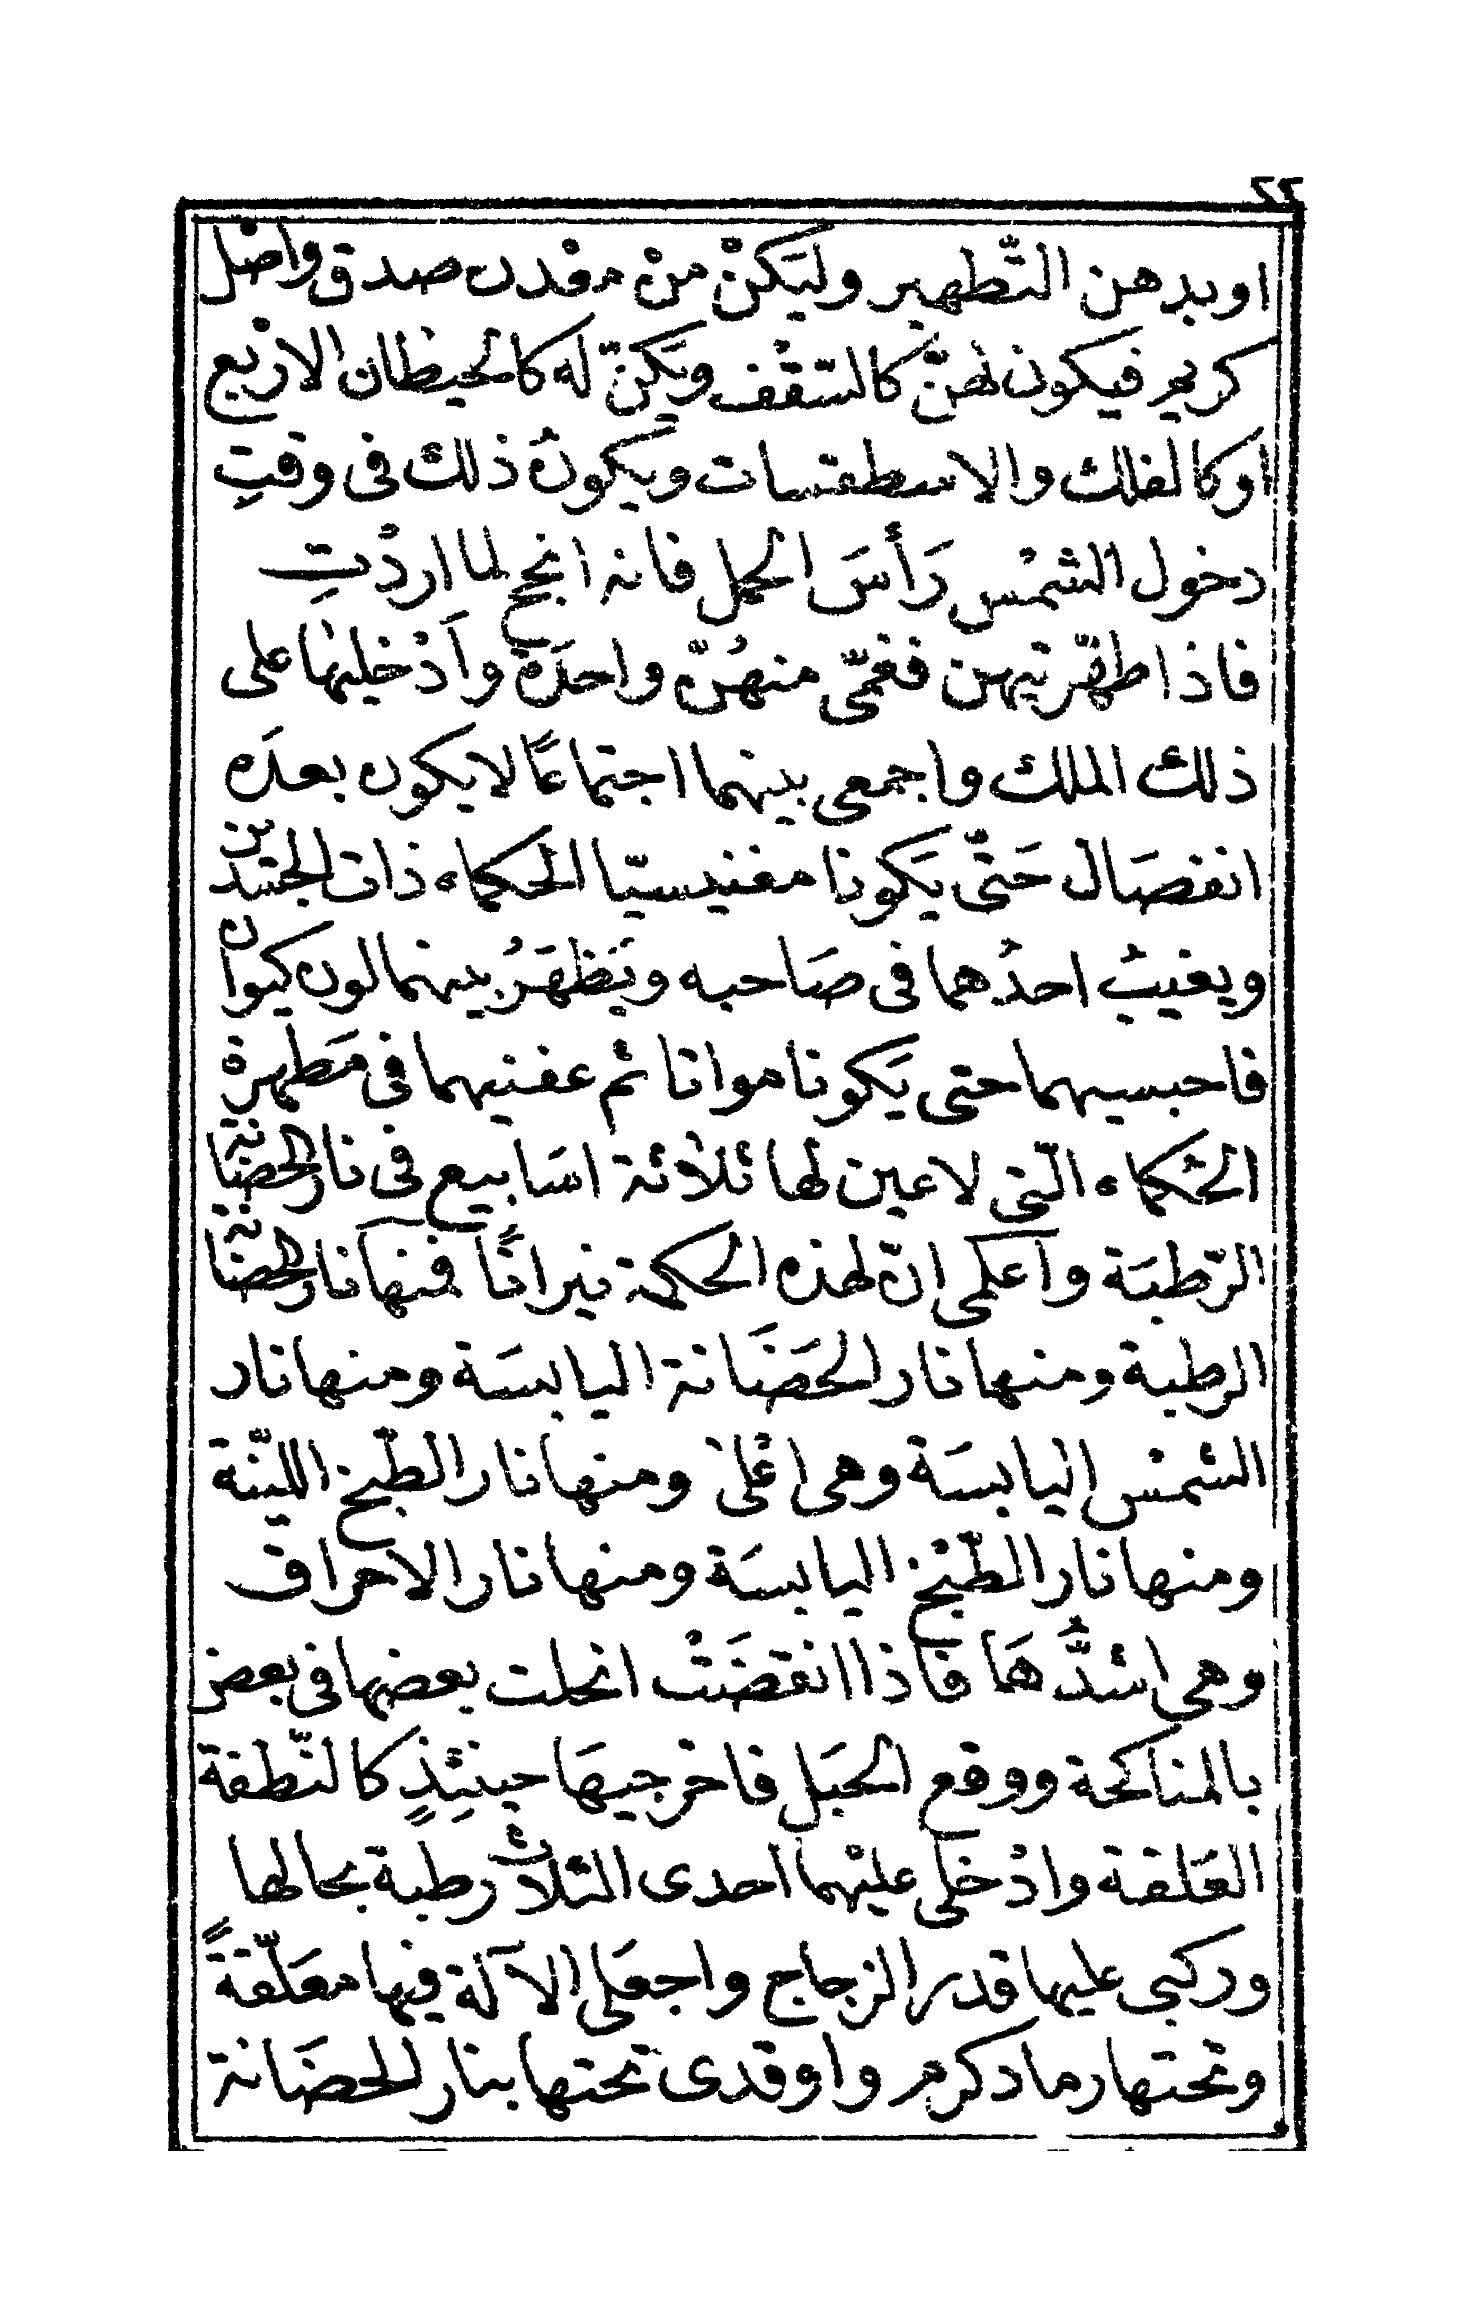 ٢٢
او بدهن التّطهير وليَكنْ منْ معْدن صدق واصْل
كريم فيكون لهنّ كالسّقْف ويَكنّ له كالحيطان الارْبع
اوكالفلك والاسطقسات ويكونُ ذلك فى وقتِ
دخول الشمْس رَأسَ الحمل فانه انجح لما اردْتِ
فاذا طهّرتيهن فغمّى منهُنّ واحدَة وآدْخليها على
ذلك الملك واجمعى بينهما اجتماعًا لا يكون بعدَه
انفصَال حَتّى يَكونا مغنيسيّا الحكماء ذات الجسَدين
ويغيبُ احدُهما فى صَاحبه ويَظهَرُ بينهما لون كيوان
فاحبسيهما حتى يَكونا مواتا ثم عفنيهما فى مَطهرة
الحكماء الّتى لا عين لها ثلاثة اسَابيع فى نار الحضَانة
الرّطبَة وآعلمى انّ لهذه الحكمة نيرانًا فمنها نار الحضَانة
الرطبة ومنها نار الحَضَانة اليابسَة ومنها نار
الشمْس اليابسَة وهى اعْلىٰ ومنها نار الطّبخ اللينّة
ومنها نار الطّبْخ اليابسَة ومنها نار الاحراق
وهى اشدُّهَا فاذا انقضَتْ انحلت بعضها فى بعض
بالمناكحة ووقع الحبَل فاخرجيهَا حينئِذٍ كالنّطفة
العَلقة وادْخلى عليْهما احدى الثلاثْ رطبة بحالها
وركبى عليها قدر الزجاج واجعَلى الآلة فيها معَلّقةً
وتحتها رماد كرم واوقدى تحتها بنار الحضَانة